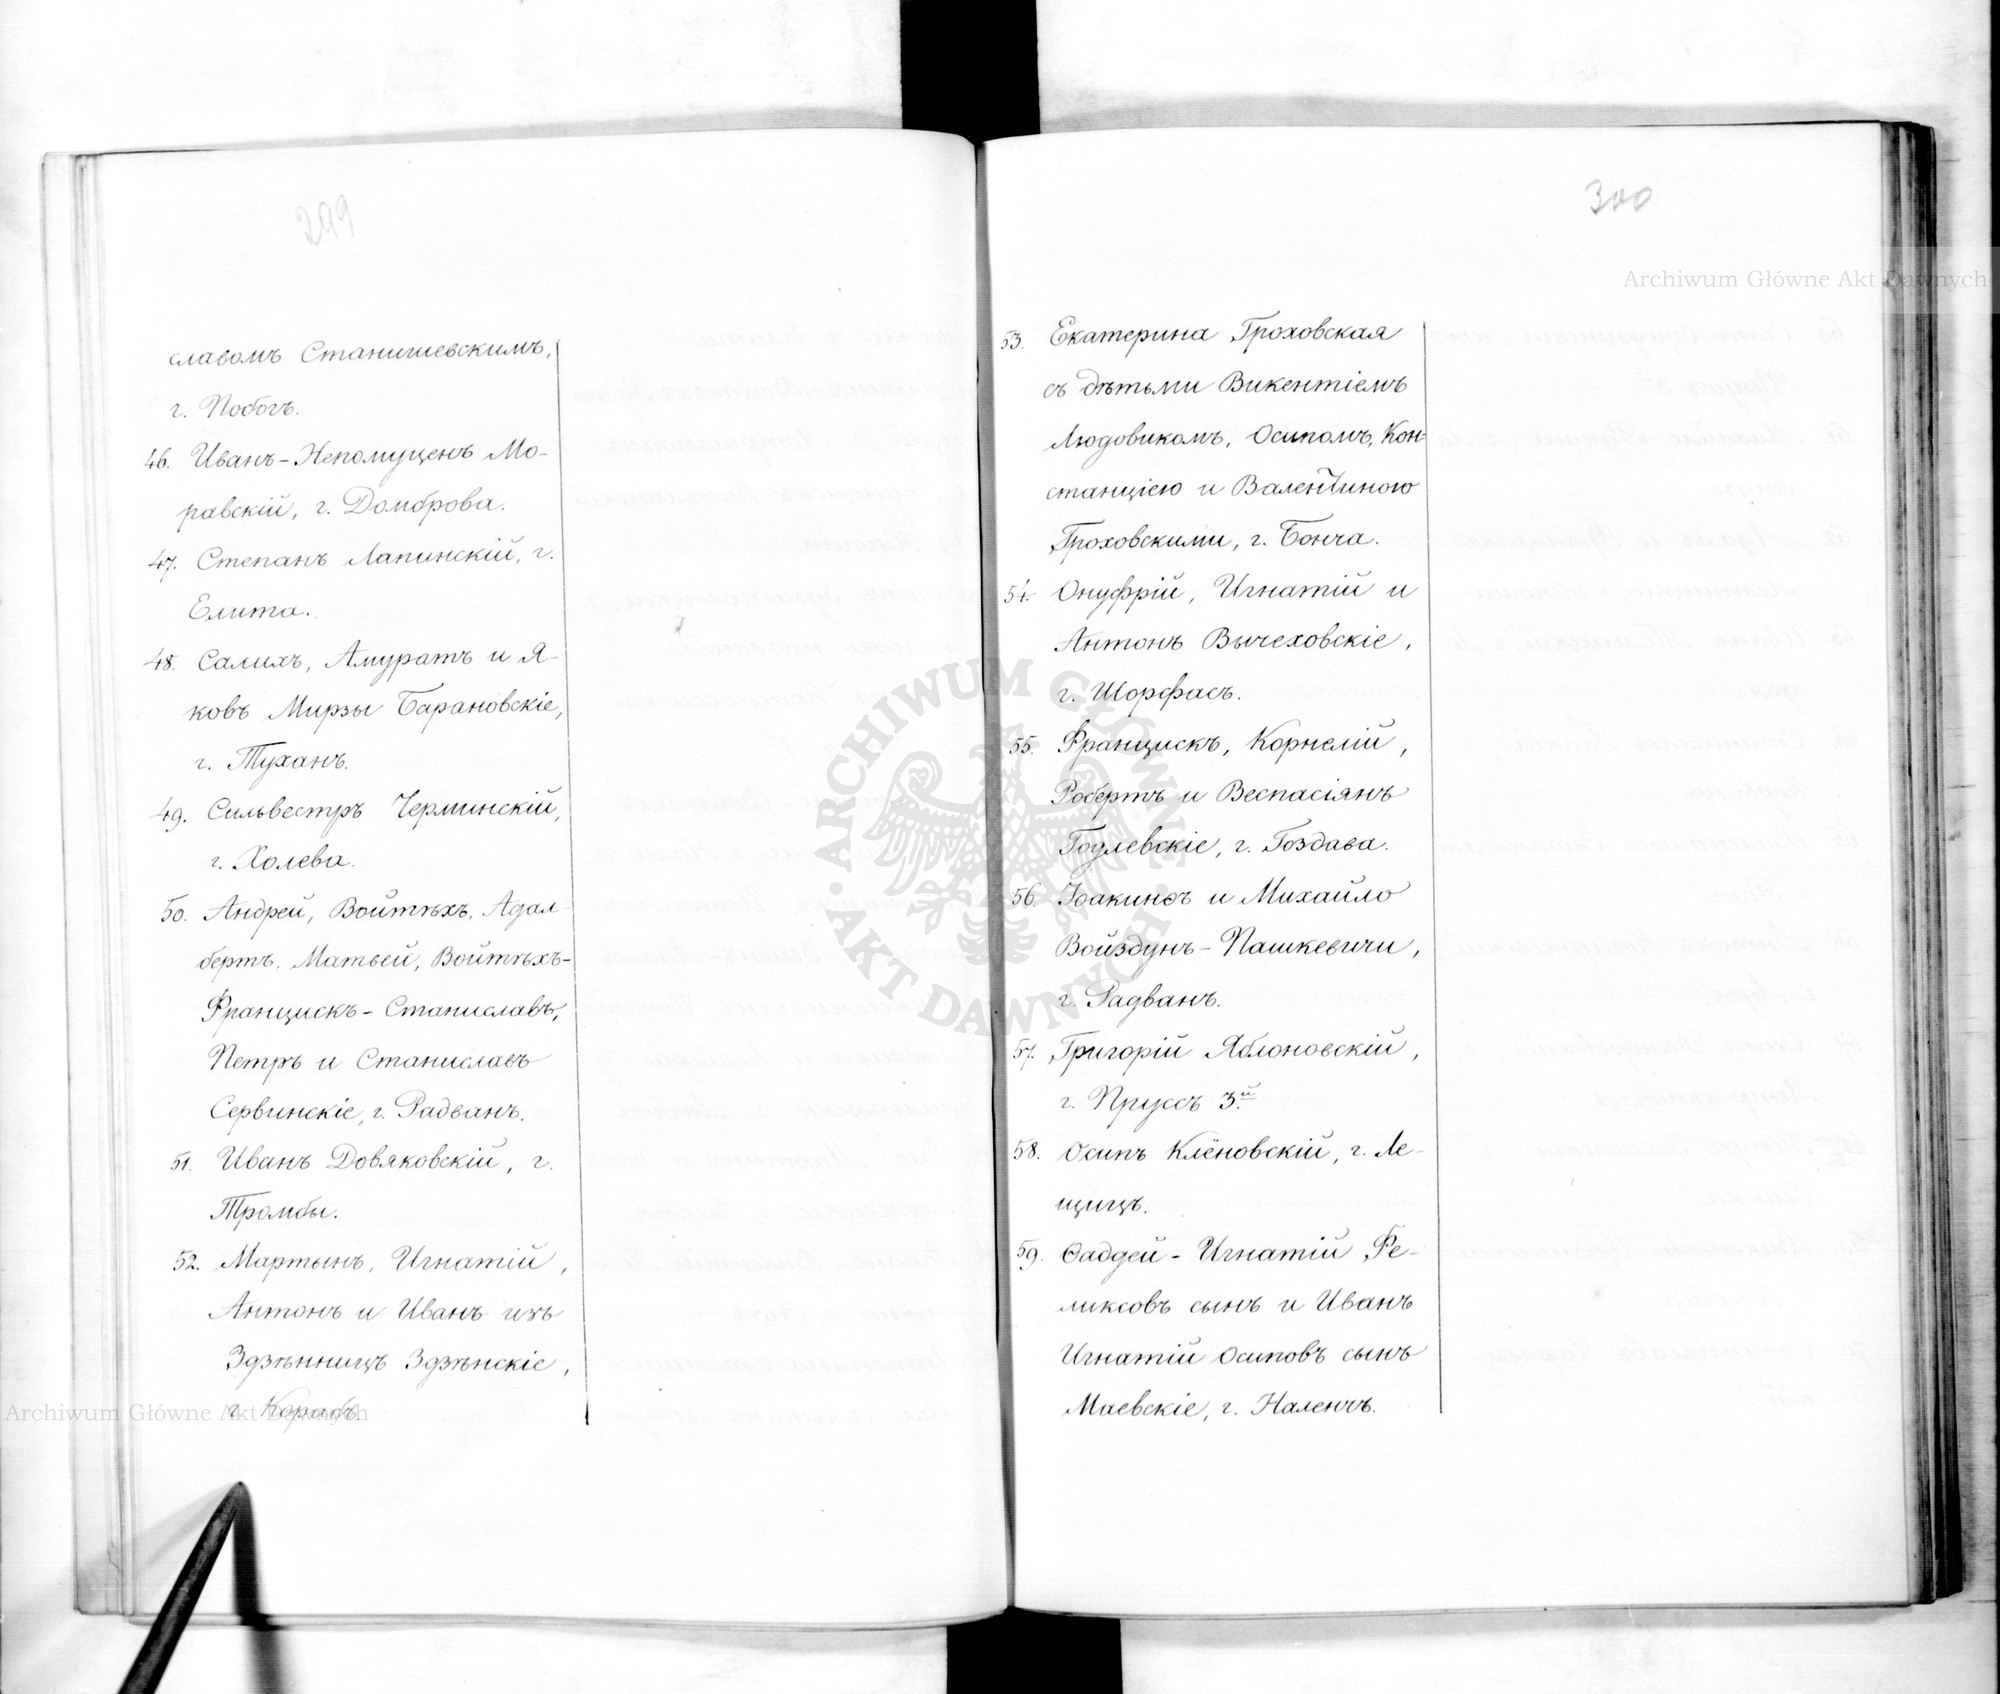 299
славомъ Станишевскимъ,
г. Побогъ.
46. Иванъ-Непомуценъ Мо-
равскій, г. Домброва.
47. Степанъ Лапинскій, г.
Елита.
48. Салихъ, Амуратъ и Я-
ковъ Мирзы Барановскіе,
г. Туханъ.
49. Сильвестръ Черминскій,
г. Холева.
50. Андрей, Войтѣхъ, Адал-
бертъ, Матвей, Войтѣхъ-
Францискъ-Станиславъ,
Петръ и Станиславъ
Сервинскіе, г. Радванъ.
51. Иванъ Довяковскій, г.
Тромбы.
52. Мартынъ, Игнатій,
Антонъ и Иванъ изъ
Здзѣнницъ Здзѣнскіе,
г. Корабъ.
Archiwum Główne Akt Dawnych
300
Archiwum Główne Akt Dawnych
53. Екатерина Гроховская
съ дѣтьми Викентіемъ
Людовикомъ, Осипомъ, Кон-
станціею и Валентиною
Гроховскими, г. Бонча.
54. Онуфрій, Игнатій и
Антонъ Вычеховскіе,
г. Шорфасъ.
55. Францискъ, Корнелій,
Робертъ и Веспасіянъ
Годлевскіе, г. Гоздава.
56. Іоакинъ и Михайло
Войздунъ-Пашкевичи,
г. Радванъ.
57. Григорій Яблоновскій,
г. Пруссъ 3.й
58. Осипъ Клёновскій, г. Ле-
щицъ.
59. Ѳаддей-Игнатій Фе-
ликсовъ сынъ и Иванъ
Игнатій Осиповъ сынъ
Маевскіе, г. Наленчъ.
ARCHIWUM GŁÓWNE · AKT DAWNYCH ·